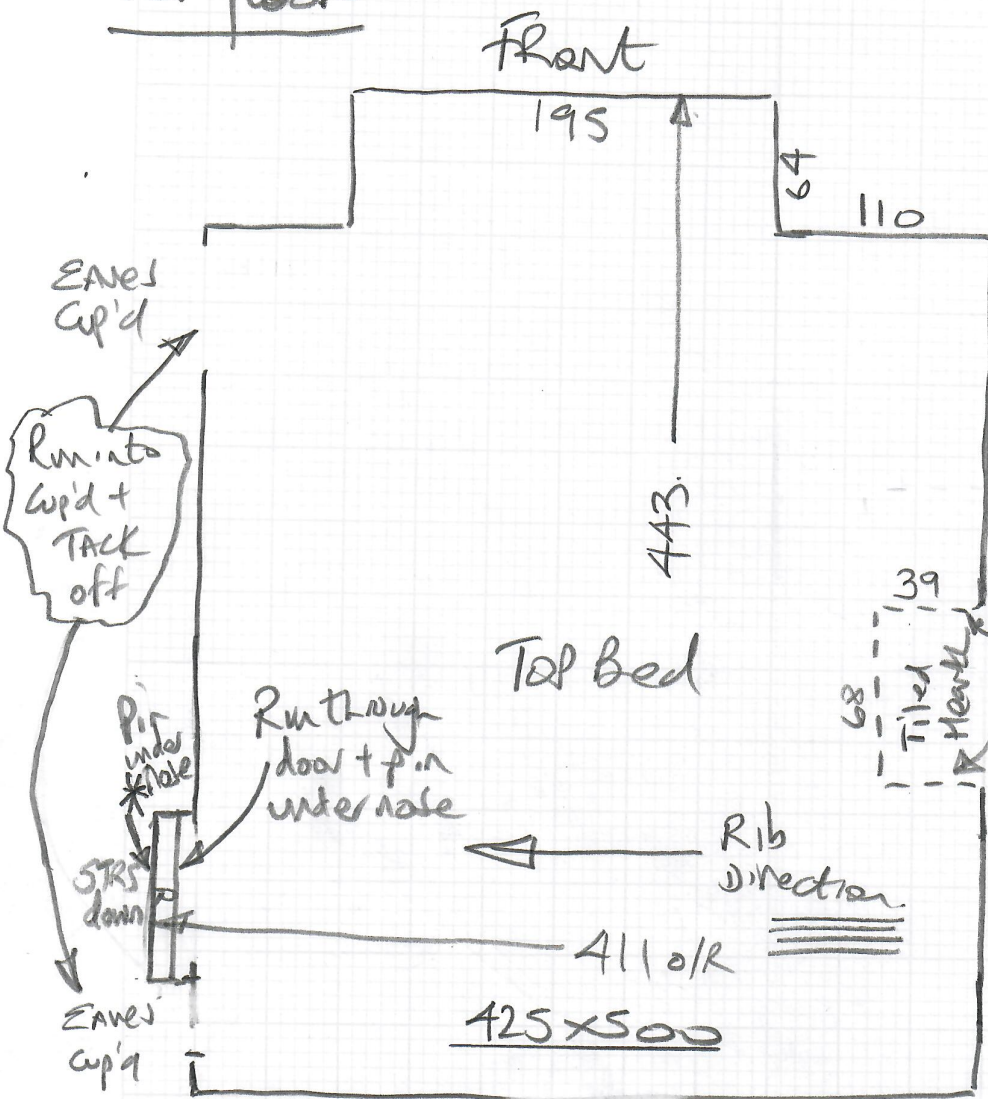 Floor
Front
195
64
110
Eaves
Cup'd
Run into
Cup'd +
TACK
off
443.
39
68
Tiled
Hearth
Top Bed
Pin
under
nose
Run through
door + pin
under nose
STRS
down
Rib
Direction
411 o/R
425 x 500
Eaves
Cup'd